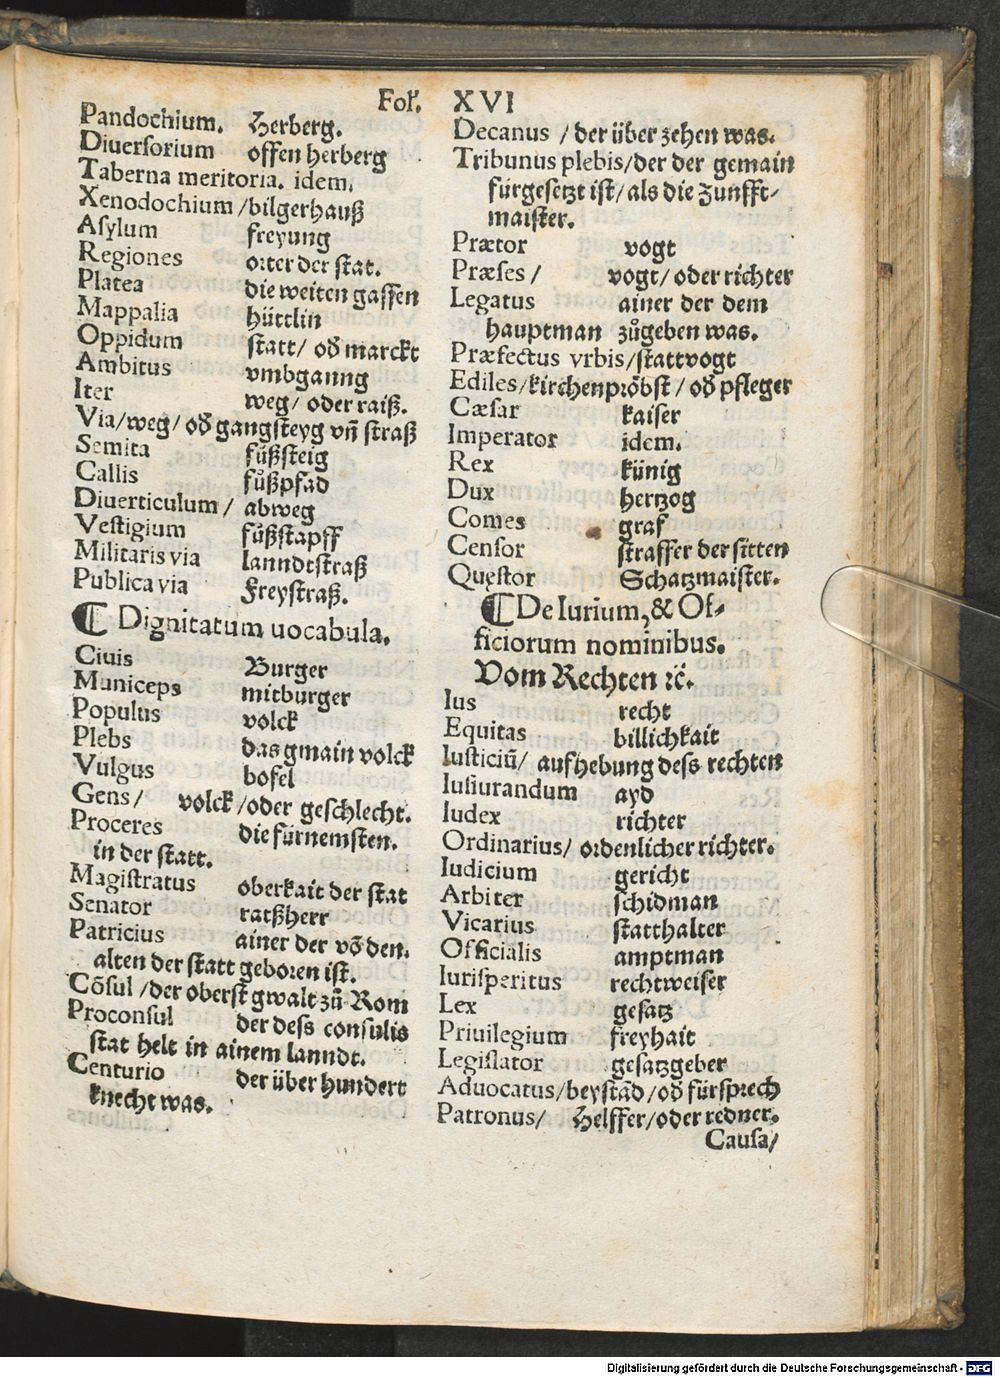 Fol. XVI
Pandochium. Herberg.
Diuersorium offen herberg
Taberna meritoria. idem.
Xenodochium /bilgerhauß
Asylum freyung
Regiones orter der stat.
Platea die weiten gassen
Mappalia hüttlin
Oppidum statt/ od̄ marckt
Ambitus vmbganng
Iter weg/ oder raiß.
Via/weg/ od̄ gangsteyg vn̄ straß
Semita fůßsteig
Callis fůßpfad
Diuerticulum / abweg
Vestigium fůßstapff
Militaris via lanndtstraß
Publica via Freystraß.
¶ Dignitatum uocabula.
Ciuis Burger
Municeps mitburger
Populus volck
Plebs das gmain volck
Vulgus bofel
Gens/ volck /oder geschlecht.
Proceres die fürnemsten.
in der statt.
Magistratus oberkait der stat
Senator ratßherr
Patricius ainer der vō den.
alten der statt geboren ist.
Cōsul /der oberst gwalt zů Rom
Proconsul der dess consulis
stat helt in ainem lanndt.
Centurio der über hundert
knecht was.
Decanus / der über zehen was.
Tribunus plebis/der der gemain
fürgesetzt ist/ als die Zunfft-
maister.
Prætor vogt
Præses / vogt/ oder richter
Legatus ainer der dem
hauptman zůgeben was.
Præfectus vrbis/stattvogt
Ediles/kirchenprȍbst / od̄ pfleger
Cæsar kaiser
Imperator idem.
Rex künig
Dux hertzog
Comes graf
Censor straffer der sitten
Quęstor Schatzmaister.
¶ De Iurium, & Of-
ficiorum nominibus.
Vom Rechten ꝛc̈.
Ius recht
Equitas billichkait
Iusticiū/ aufhebung dess rechten
Iusiurandum ayd
Iudex richter
Ordinarius/ ordenlicher richter.
Iudicium gericht
Arbiter schidman
Vicarius statthalter
Officialis amptman
Iurisperitus rechtweiser
Lex gesatz
Priuilegium freyhait
Legislator gesatzgeber
Aduocatus/beystād /od̄ fürsprech
Patronus/ Helffer/oder redner.
Causa/
Digitalisierung gefördert durch die Deutsche Forschungsgemeinschaft - DFG